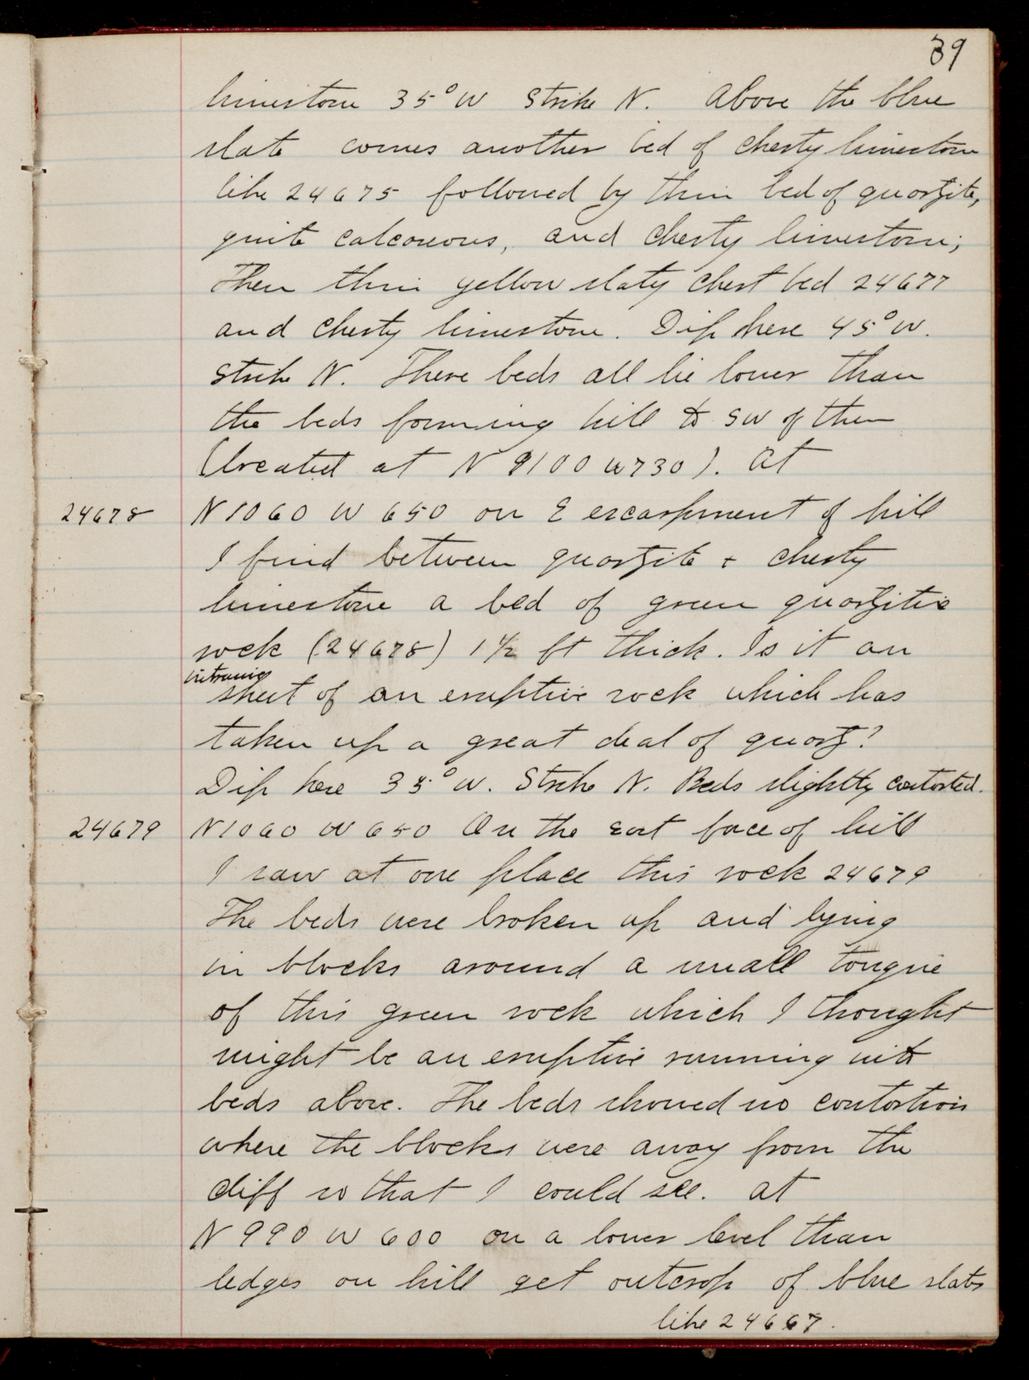 39
limestone 35° W Strike N. Above the blue
slate comes another bed of cherty limestone
like 24675 followed by thin bed of quartzite,
quite calcareous, and cherty limestone;
Then thin yellow slaty chert bed 24677
and cherty limestone. Dip here 45° W.
Strike N. These beds all lie lower than
the beds forming hill to SW of them
(located at N 9100 W730). At
24678 N1060 W 650 on E escarpment of hill
I find between quartzite + cherty
limestone a bed of green quartzitic
rock (24678) 1 1/2 ft thick. Is it an
intrusive
sheet of an eruptive rock which has
taken up a great deal of quartz?
Dip here 35° W. Strike N. Beds slightly contorted.
24679 N1060 W 650 On the East face of hill
I saw at one place this rock 24679
The beds were broken up and lying
in blocks around a small tongue
of this green rock which I thought
might be an eruptive running into
beds above. The beds showed no contortion
where the blocks were away from the
cliff so that I could see. At
N 990 W 600 on a lower level than
ledges on hill get outcrop of blue slate
like 24667.